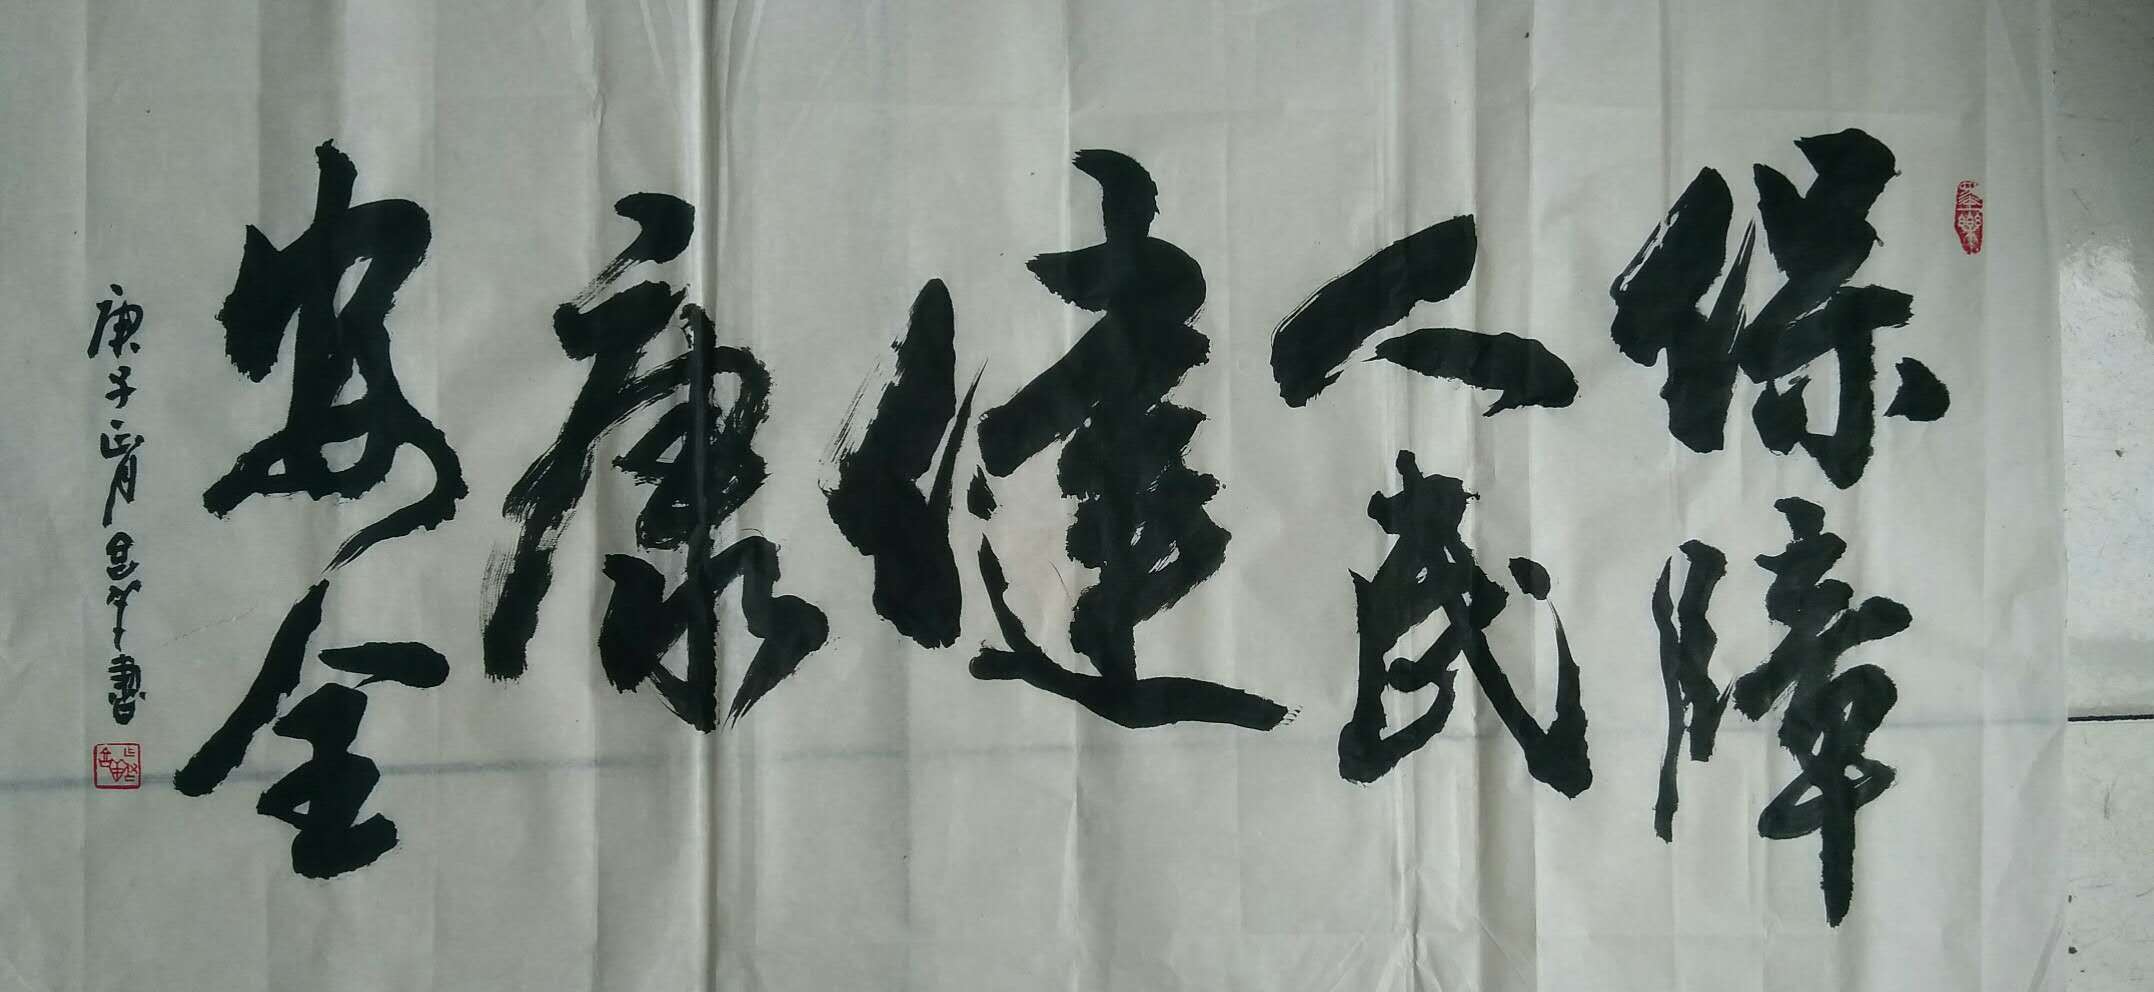 保障
人民
健
康
安全
庚子正月
書